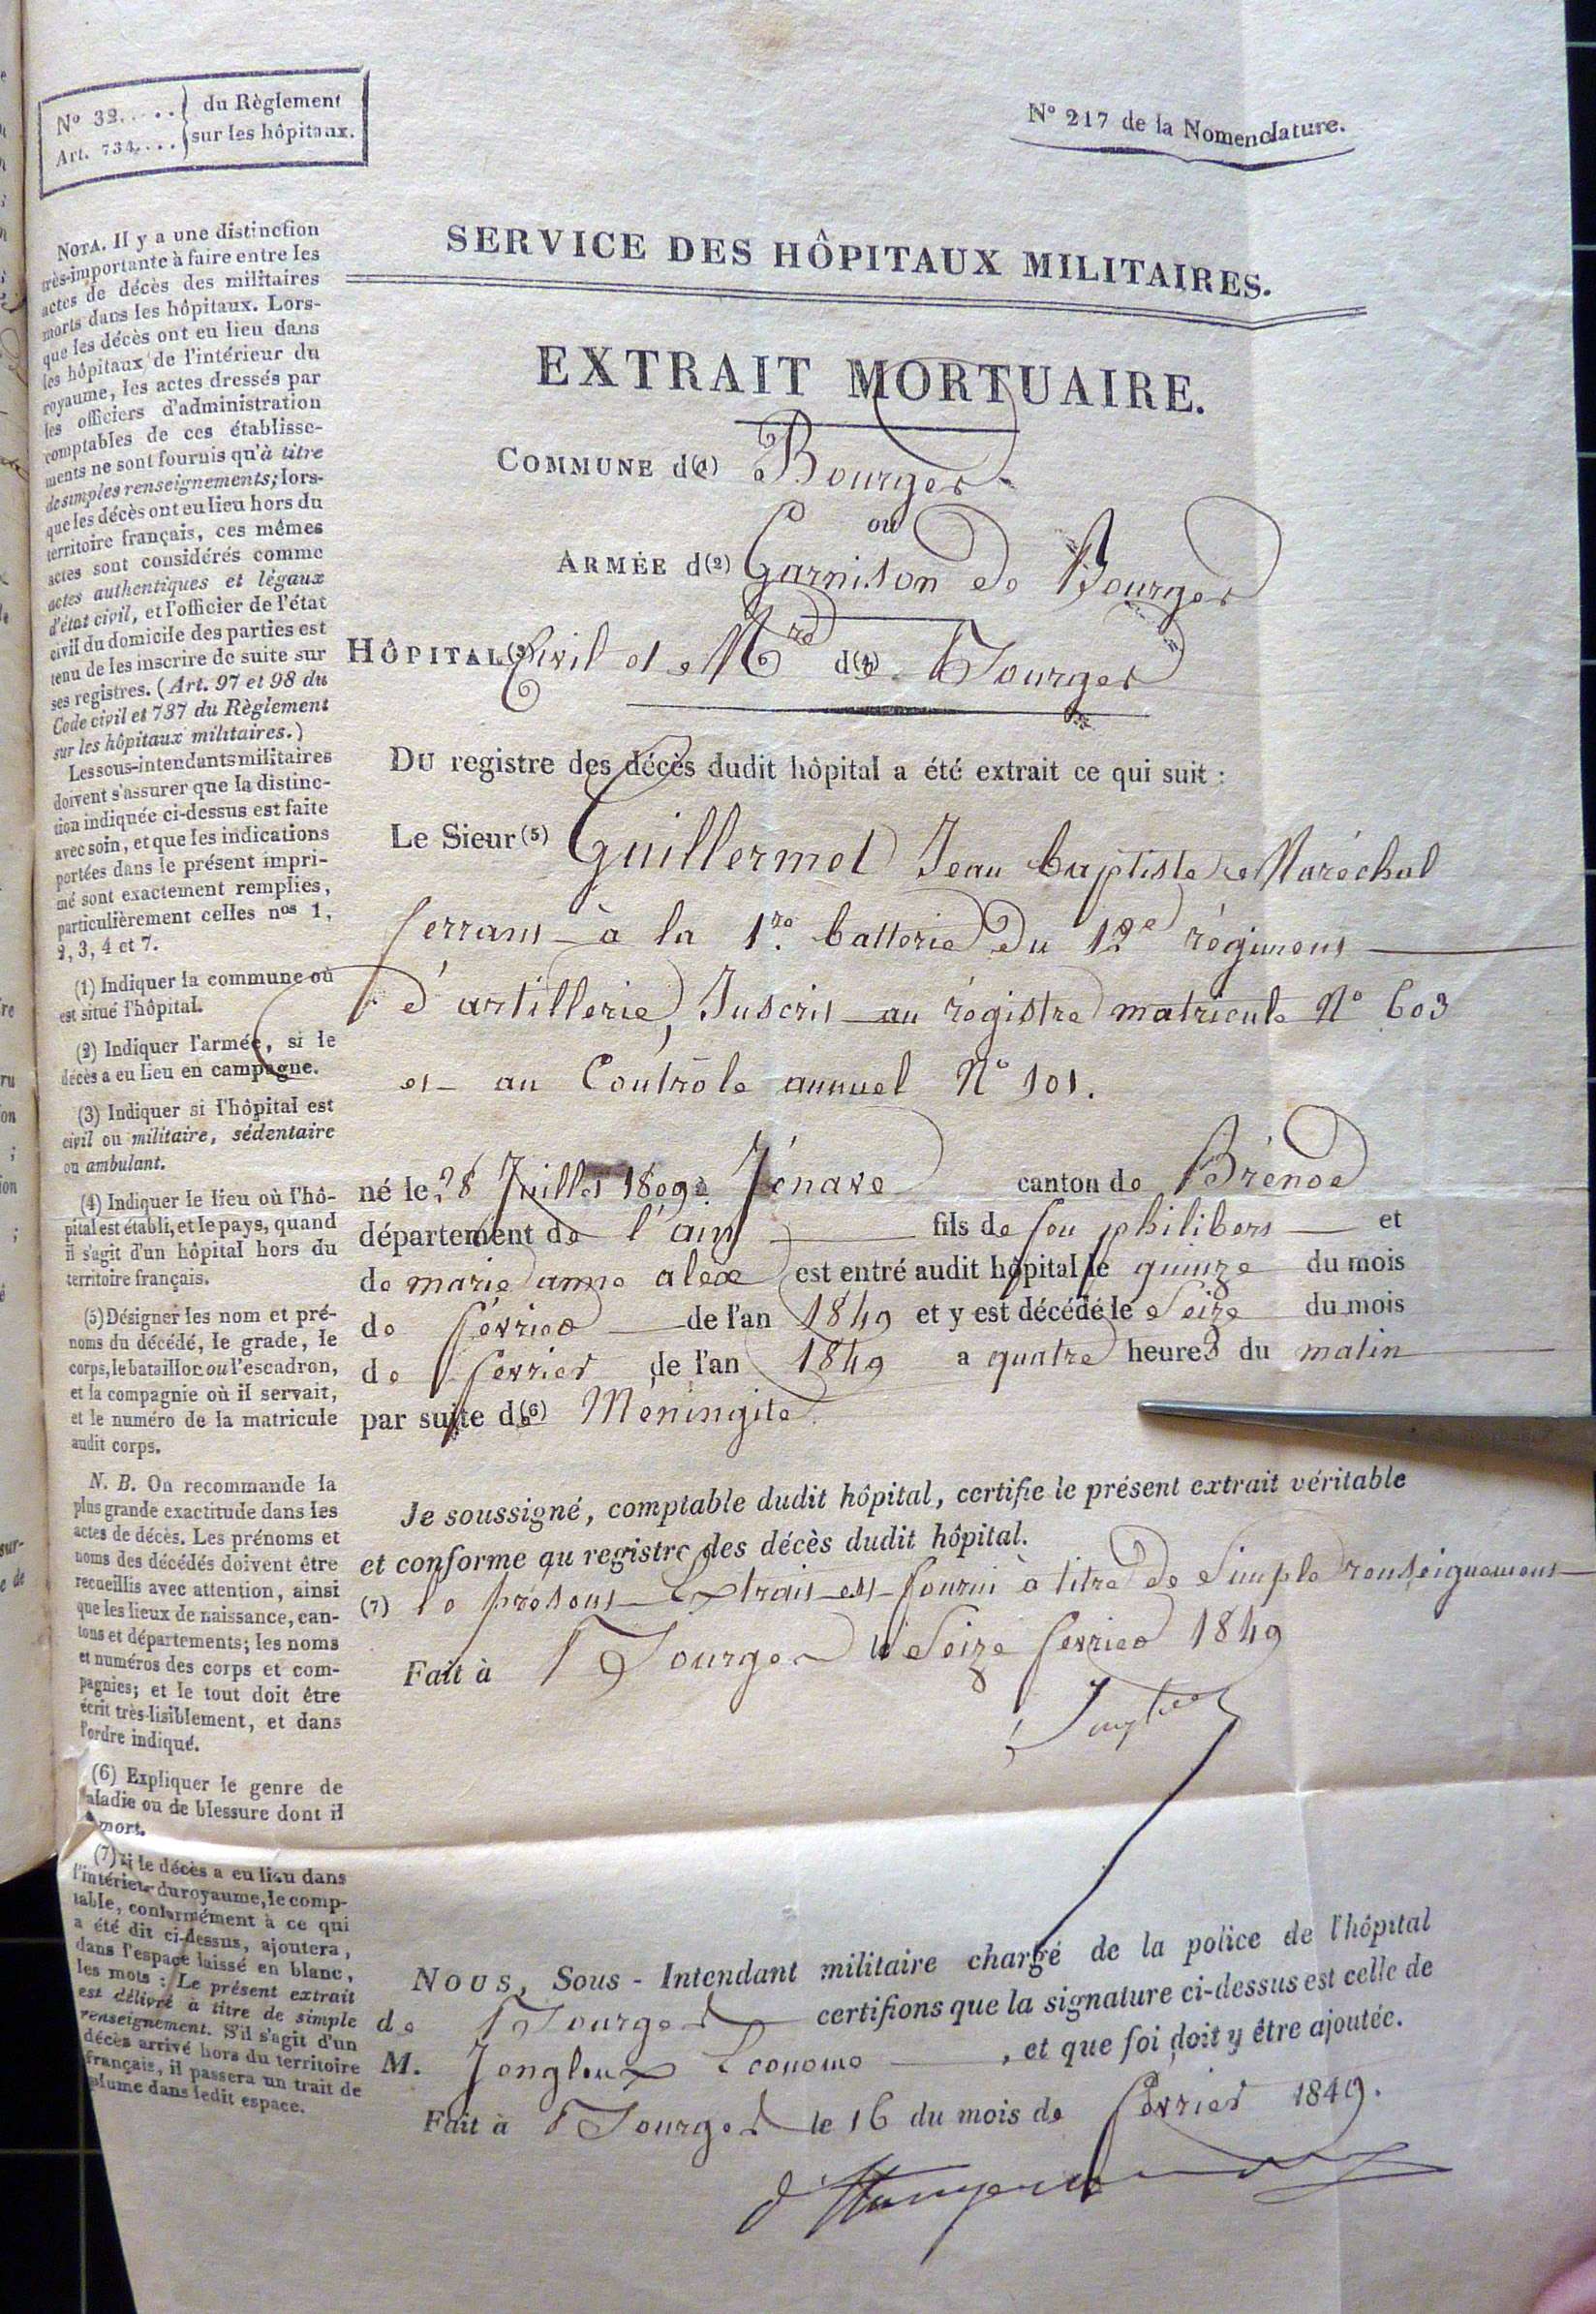 N° 32..... du Règlement
Art. 734.... sur les hôpitaux.
N° 217 de la Nomenclature.
SERVICE DES HÔPITAUX MILITAIRES.
EXTRAIT MORTUAIRE.
COMMUNE de (1) Bourges
ou
ARMÉE d(2) Garnison de Bourges
HÔPITAL (3) Civil et Mre de (4) Bourges
DU registre des décès dudit hôpital a été extrait ce qui suit :
Le Sieur (5) Guillermet Jean baptiste Maréchal
ferrant à la 1re batterie du 12e régiment
d'artillerie, Inscrit au régistre matricule N° 603
et au Contrôle annuel N° 101.
né le 28 Juillet 1809 à Jénave canton de Brénod
département de l'ain fils de feu philibert et
de marie anne alex est entré audit hôpital le quinze du mois
de février de l'an 1849 et y est décédé le Seize du mois
de fevrier de l'an 1849 a quatre heures du matin
par suite de (6) Méningite.
Je soussigné, comptable dudit hôpital, certifie le présent extrait véritable
et conforme au registre des décès dudit hôpital.
(7) le présent Extrait est fourni à titre de Simple renseignement
Fait à Bourges le Seize fevrier 1849
NOUS, Sous-Intendant militaire chargé de la police de l'hôpital
de Bourges certifions que la signature ci-dessus est celle de
M. Econome , et que foi doit y être ajoutée.
Fait à Bourges le 16 du mois de février 1849.
NOTA. Il y a une distinction
très-importante à faire entre les
actes de décès des militaires
morts dans les hôpitaux. Lors-
que les décès ont eu lieu dans
les hôpitaux de l'intérieur du
royaume, les actes dressés par
les officiers d'administration
comptables de ces établisse-
ments ne sont fournis qu'à titre
de simples renseignements; lors-
que les décès ont eu lieu hors du
territoire français, ces mêmes
actes sont considérés comme
actes authentiques et légaux
d'état civil, et l'officier de l'état
civil du domicile des parties est
tenu de les inscrire de suite sur
ses registres. (Art. 97 et 98 du
Code civil et 737 du Règlement
sur les hôpitaux militaires.)
Les sous-intendants militaires
doivent s'assurer que la distinc-
tion indiquée ci-dessus est faite
avec soin, et que les indications
portées dans le présent impri-
mé sont exactement remplies,
particulièrement celles nos 1,
2, 3, 4 et 7.
(1) Indiquer la commune où
est situé l'hôpital.
(2) Indiquer l'armée, si le
décès a eu lieu en campagne.
(3) Indiquer si l'hôpital est
civil ou militaire, sédentaire
ou ambulant.
(4) Indiquer le lieu où l'hô-
pital est établi, et le pays, quand
il s'agit d'un hôpital hors du
territoire français.
(5) Désigner les nom et pré-
noms du décédé, le grade, le
corps, le bataillon ou l'escadron,
et la compagnie où il servait,
et le numéro de la matricule
audit corps.
N. B. On recommande la
plus grande exactitude dans les
actes de décès. Les prénoms et
noms des décédés doivent être
recueillis avec attention, ainsi
que les lieux de naissance, can-
tons et départements; les noms
et numéros des corps et com-
pagnies; et le tout doit être
écrit très-lisiblement, et dans
l'ordre indiqué.
(6) Expliquer le genre de
maladie ou de blessure dont il
mort.
(7) Si le décès a eu lieu dans
l'intérieur du royaume, le comp-
table, conformément à ce qui
a été dit ci-dessus, ajoutera,
dans l'espace laissé en blanc,
les mots : Le présent extrait
est délivré à titre de simple
renseignement. S'il s'agit d'un
décès arrivé hors du territoire
français, il passera un trait de
plume dans ledit espace.